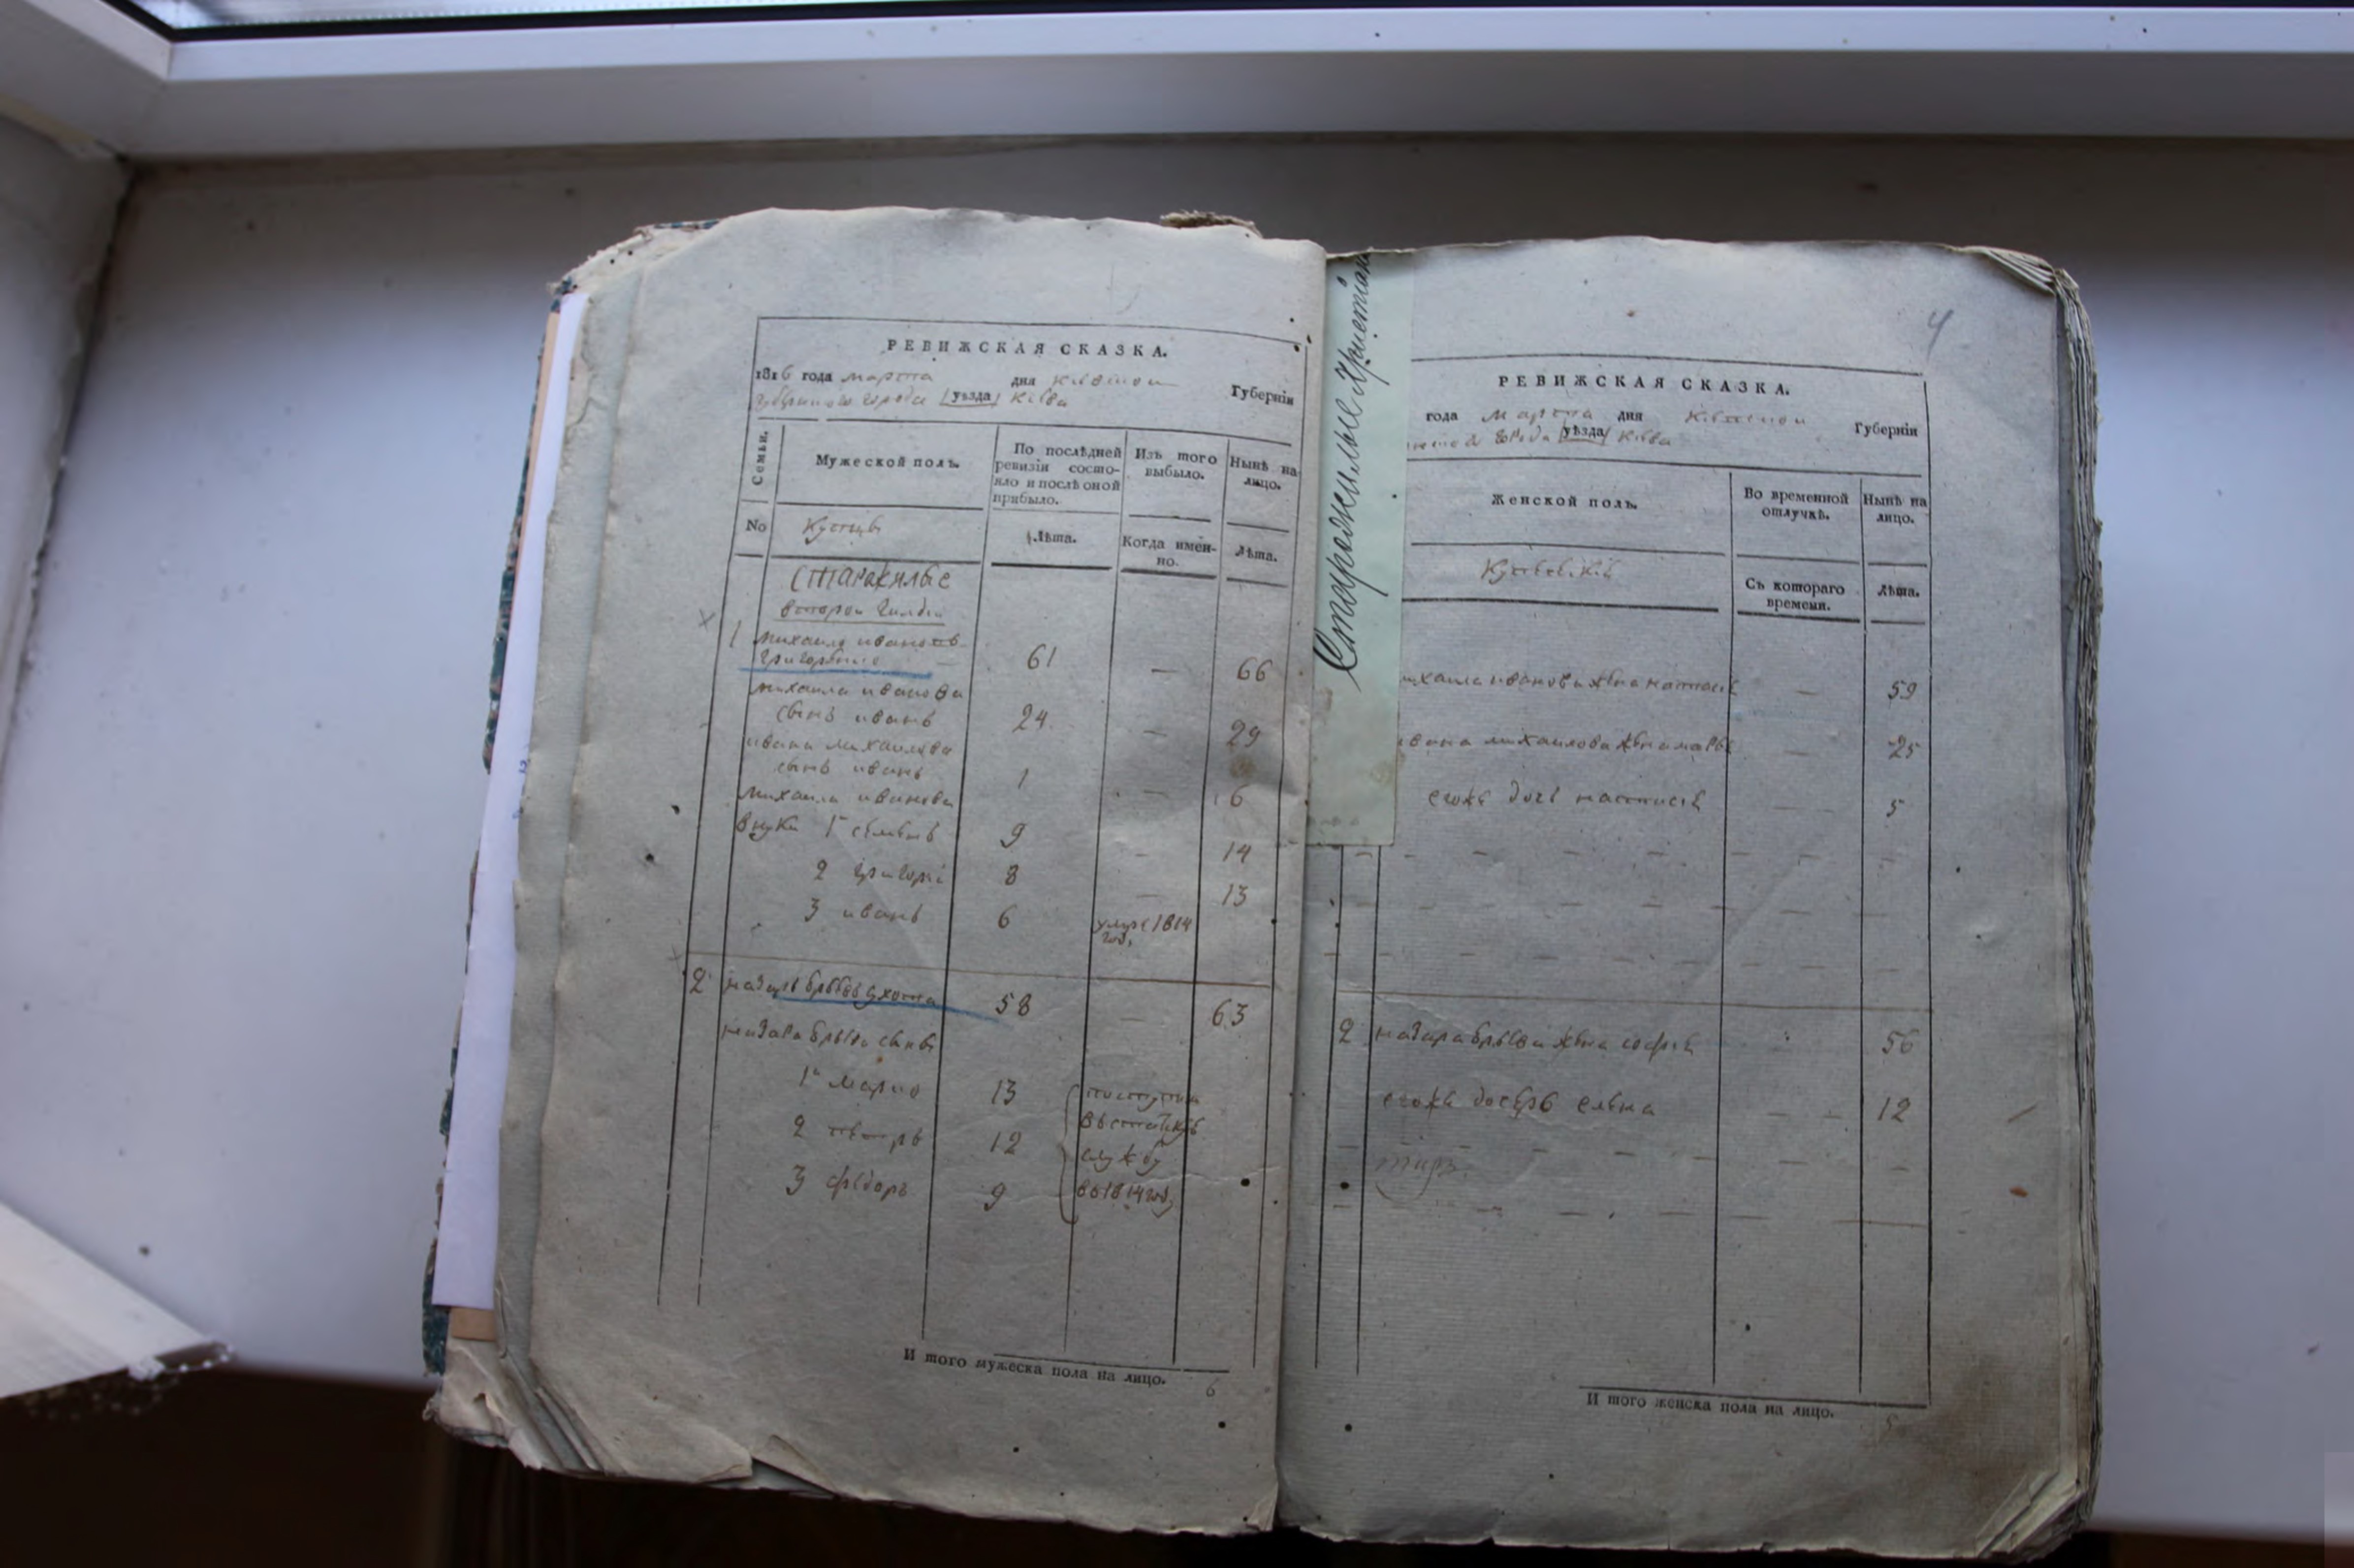 РЕВИЖСКАЯ СКАЗКА.
1816 года марта дня Кіевской Губерніи
губернского города (уѣзда) Кіева
Семьи.
Мужеской полъ.
По послѣдней ревизіи состояло и послѣ оной прибыло.
Изъ того выбыло.
Нынѣ на лицо.
No
Купцы
Лѣта.
Когда имѣнно.
Лѣта.
старожилые
второй гилдіи
1 михаило ивановъ
61 — 66
михаила иванова
сынъ иванъ 24 — 29
ивана михаилова
сынъ иванъ 1 — 6
михаила иванова
внуки 1й семенъ 9 - 14
2 григорі 8 - 13
3 иванъ 6 умре 1814
год,
2 назаръ 58 — 63
назара сины
1й марко 13 поступили
2 петръ 12
службу
3 федоръ 9 в 1814 год,
И того мужеска пола на лицо. 6
Старожилые Христіане
4
РЕВИЖСКАЯ СКАЗКА.
года марта дня Кіевской Губерніи
города (уѣзда) Кіева
Женской полъ.
Во временной отлучкѣ.
Нынѣ на лицо.
Съ котораго времени.
Лѣта.
михаила иванова жена настасіе — 59
ивана михаилова жена — 25
егоже дочь настасіе - - 5
2 назара жена софіе 56
егоже дочерь елена - - 12
И того женска пола на лицо. 5